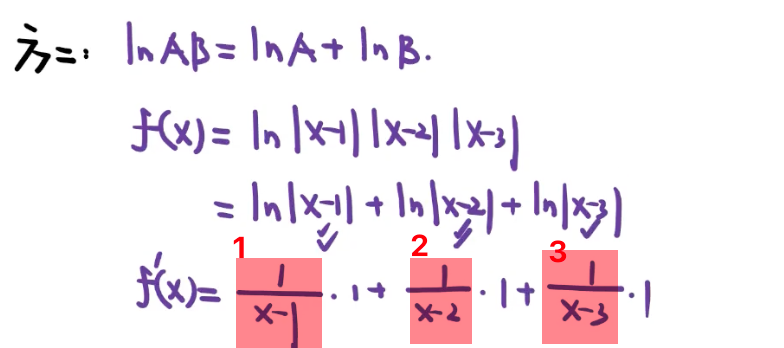 方二: ln AB = ln A + ln B.
f(x) = ln |x-1| |x-2| |x-3|
= ln|x-1| + ln|x-2| + ln|x-3|
1 2 3
f'(x) = 1/(x-1) · 1 + 1/(x-2) · 1 + 1/(x-3) · 1